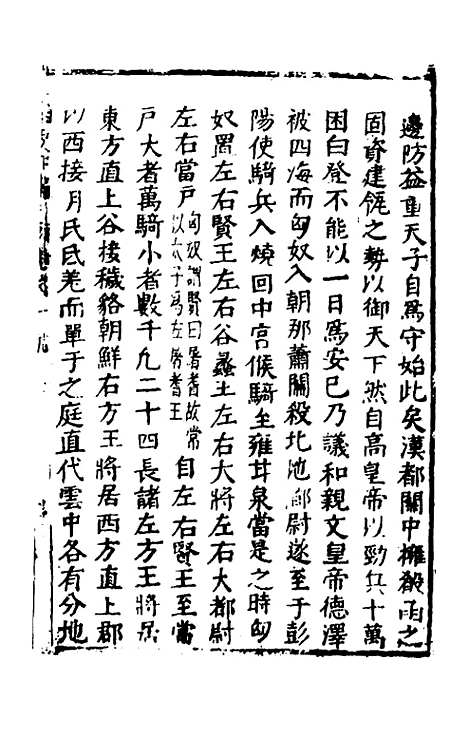 邊防益重天子自爲守始此矣漢都關中擁殽函之
固資建瓴之勢以御天下然自高皇帝以勁兵十萬
困白登不能以一日爲安已乃議和親文皇帝德澤
被四海而匈奴入朝那蕭關殺北池都尉遂至于彭
陽使騎兵入燒回中宫候騎至雍甘泉當是之時匈
奴置左右賢王左右谷蠡王左右大將左右大都尉
左右當戶匈奴謂賢曰屠耆故常以太子爲左屠耆王自左右賢王至當
戶大者萬騎小者數千凡二十四長諸左方王將居
東方直上谷接穢貉朝鮮右方王將居西方直上郡
以西接月氏氐羌而單于之庭直代雲中各有分地